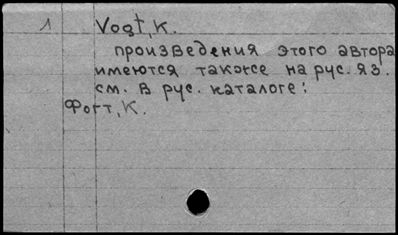 1 Vogt, K.
произведения этого автора
имеются также на рус. яз.
см. в рус. каталоге:
Фогт, К.